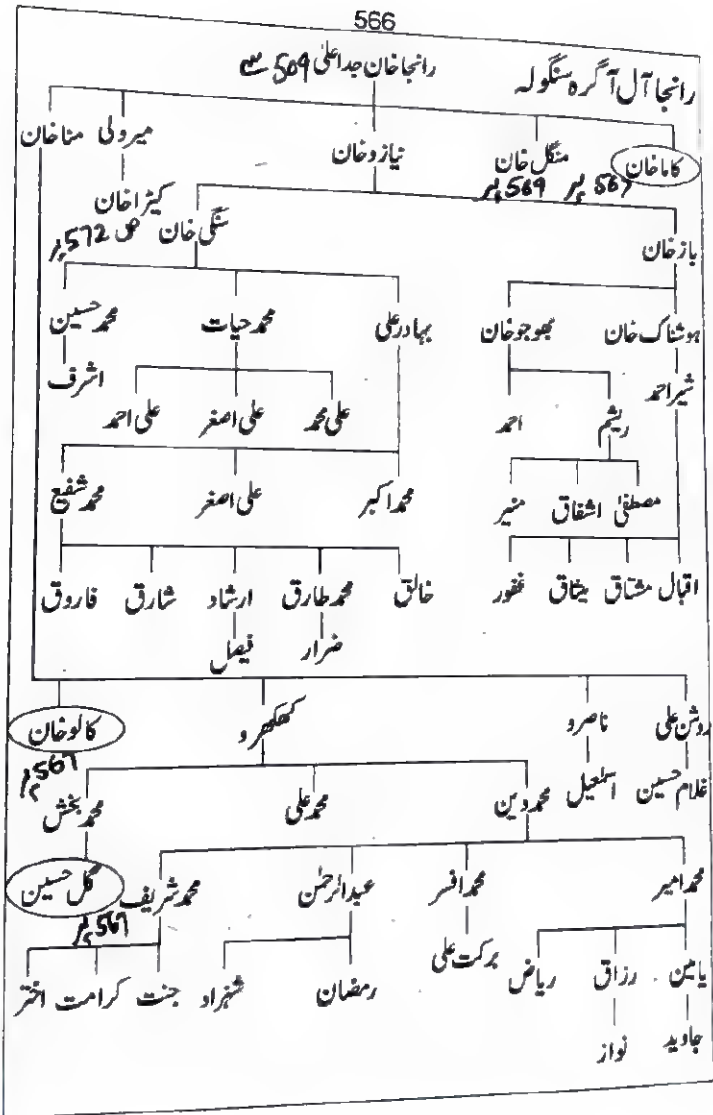 566
رانجا آل آگرہ سنگولہ رانجا خان جد اعلیٰ 509 سے
کاما خان منگل خان نیازو خان میرولی منا خان
567 پر 569 پر
کیڑا خان
ص 572 پر
باز خان سنگی خان
ہوشناک خان بھوجو خان بہادر علی محمد حیات محمد حسین
شیر احمد ریشم احمد علی محمد علی اصغر علی احمد اشرف
مصطفیٰ اشفاق منیر محمد اکبر علی اصغر محمد شفیع
اقبال مشتاق میثاق غفور خالق محمد طارق ارشاد شارق فاروق
ضرار فیصل
روشن علی ناصرو کھکھرو کالو خان
567 پر
غلام حسین اسمٰعیل محمد دین محمد علی محمد بخش
محمد امیر محمد افسر عبدالرحمٰن محمد شریف گل حسین
567 پر
یامین رزاق ریاض برکت علی رمضان شہزاد جنت کرامت اختر
جاوید نواز